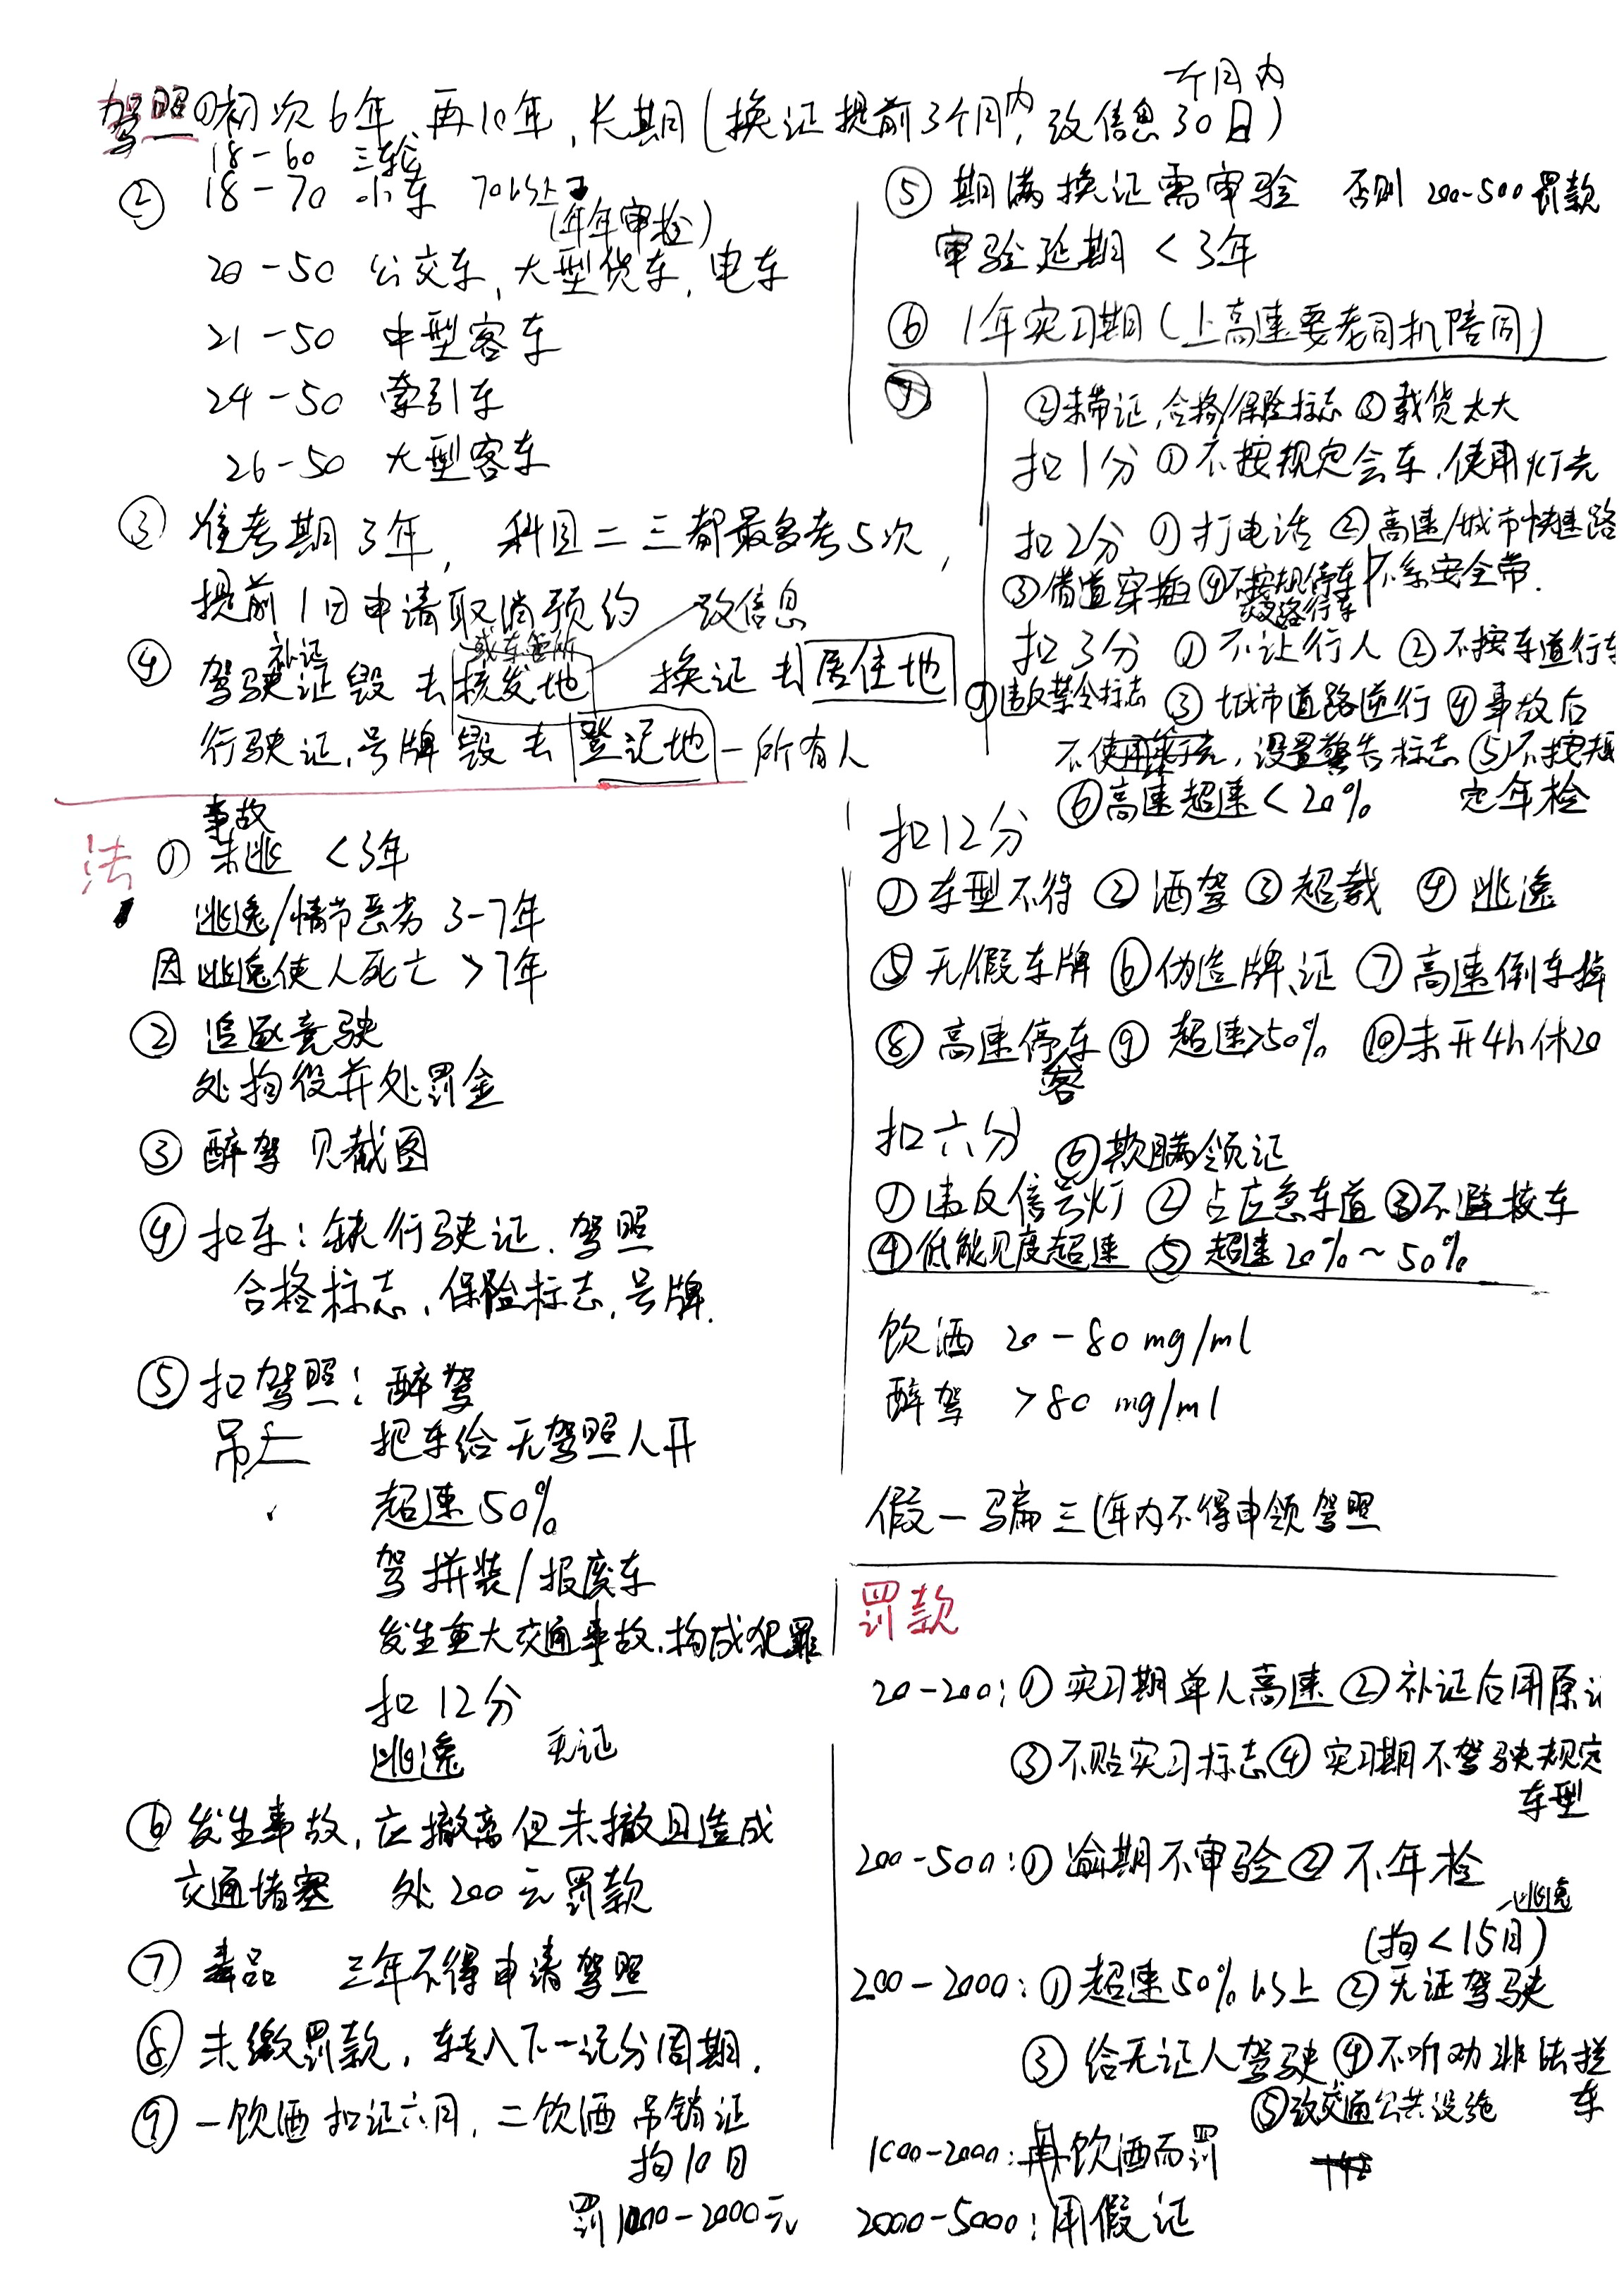 个月内
驾照①初次6年,再10年,长期(换证提前3个月内,改信息30日)
18-60 三轮
② 18-70 小车 70以上
(年年审检)
20-50 公交车,大型货车,电车
21-50 中型客车
24-50 牵引车
26-50 大型客车
③ 准考期3年, 科目二三都最多考5次,
提前1日申请取消预约 改信息
补证 或车管所
④ 驾驶证毁去核发地 换证去居住地
行驶证,号牌毁去登记地-所有人
⑤ 期满换证需审验 否则200-500罚款
审验延期<3年
⑥ 1年实习期(上高速要老司机陪同)
⑦
②未带证,合格/保险标志 ③载货太大
扣1分 ①不按规定会车,使用灯光
扣2分 ①打电话 ②高速/城市快速路
不系安全带.
③借道穿插 ④不按规停车
扣3分 ①不让行人 ②不按车道行车
⑦违反禁令标志 ③城市道路逆行 ④事故后
不使用灯光,设置警告标志 ⑤不按规
定年检
⑥高速超速<20%
扣12分
①车型不符 ②酒驾 ③超载 ④逃逸
⑤无/假车牌 ⑥伪造牌、证 ⑦高速倒车掉
⑧高速停车 ⑨超速>50% ⑩未开4h休20
客
扣六分 ⑥欺瞒领证
①违反信号灯 ②占应急车道 ③不避校车
④低能见度超速 ⑤超速20%~50%
饮酒 20-80mg/ml
醉驾 >80mg/ml
假一骗三(年内不得申领驾照
事故
法 ①未逃 <3年
逃逸/情节恶劣 3-7年
因逃逸使人死亡 >7年
② 追逐竞驶
处拘役并处罚金
③ 醉驾 见截图
④ 扣车:缺行驶证.驾照
合格标志,保险标志,号牌.
⑤ 扣驾照:醉驾
吊 把车给无驾照人开
超速50%
驾拼装/报废车
发生重大交通事故.构成犯罪
扣12分
逃逸 无证
⑥ 发生事故,应撤离但未撤且造成
交通堵塞 处200元罚款
⑦ 毒品 三年不得申请驾照
⑧ 未缴罚款,转入下一记分周期.
⑨ 一饮酒扣证六月, 二饮酒吊销证
拘10日
罚1000-2000元
罚款
20-200:①实习期单人高速 ②补证后用原证
③不贴实习标志 ④实习期不驾驶规定
车型
200-500:①逾期不审验 ②不年检
逃逸
(拘<15日)
200-2000:①超速50%以上 ②无证驾驶
③给无证人驾驶 ④不听劝非法拦
车
⑤改交通公共设施
1000-2000:再饮酒而罚
2000-5000:用假证